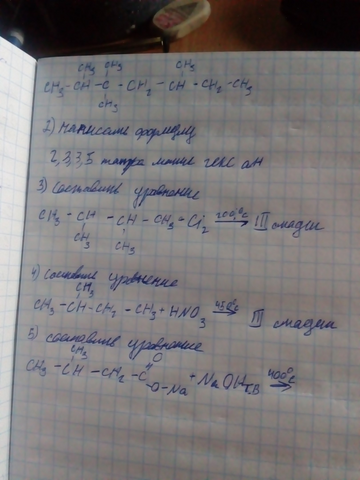 CH3 CH3 CH3
CH3 - CH - C - CH2 - CH - CH2 - CH3
CH3
2) написать формулу
2,3,3,5 тетра метил гексан
3) Составить уравнение
CH3 - CH - CH - CH3 + Cl2 200°C III стадии
CH3 CH3
4) составить уравнение
CH3
CH3 - CH - CH2 - CH3 + HNO3 450°C II стадии
5) составить уравнение
CH3 O
CH3 - CH - CH2 - C + NaOH тв 400°C
O-Na